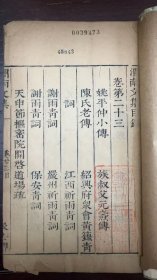 0039473
渭南文集目錄
卷第二十三
姚平仲小傳 族叔父元燾傳
陳氏老傳 紹興府衆會黃籙青
詞 江西祈雨青詞
謝雨青詞 嚴州祈雨青詞
謝雨青詞 保安青詞
天申節樞密院開啓道場疏
渭南文集